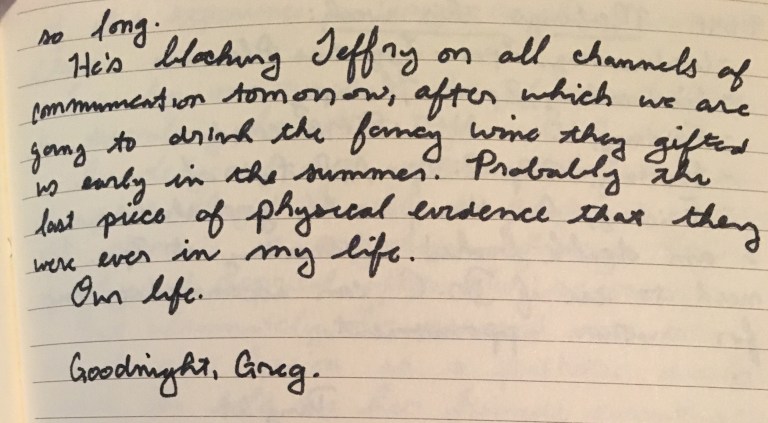 so long.
He's blocking Jeffry on all channels of
communication tomorrow, after which we are
going to drink the fancy wine they gifted
us early in the summer. Probably the
last piece of physical evidence that they
were ever in my life.
Our life.
Goodnight, Greg.